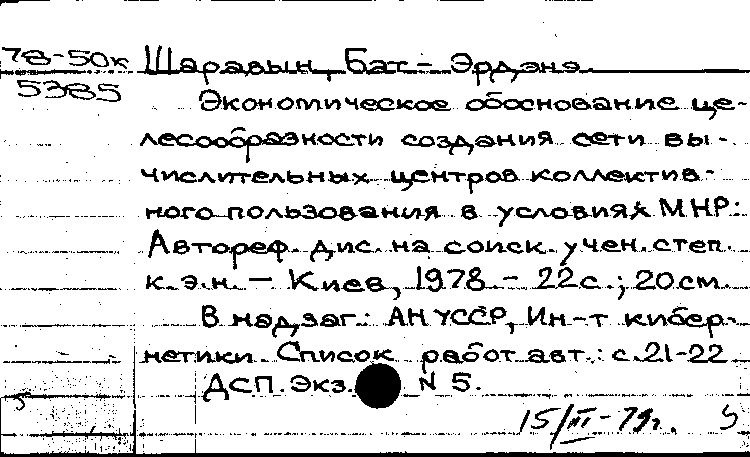 78-50к Шаравын, Бат-Эрдэнэ.
5385
Экономическое обоснование це-
лесообразности создания сети вы-
числительных центров коллектив-
ного пользования в условиях МНР:
Автореф. дис. на соиск. учен. степ.
к.э.н. – Киев, 1978. – 22с.; 20см.
В надзаг.: АН УССР, Ин-т кибер-
нетики. Список работ авт.: с.21-22
ДСП. Экз. N 5.
15/III-79г.